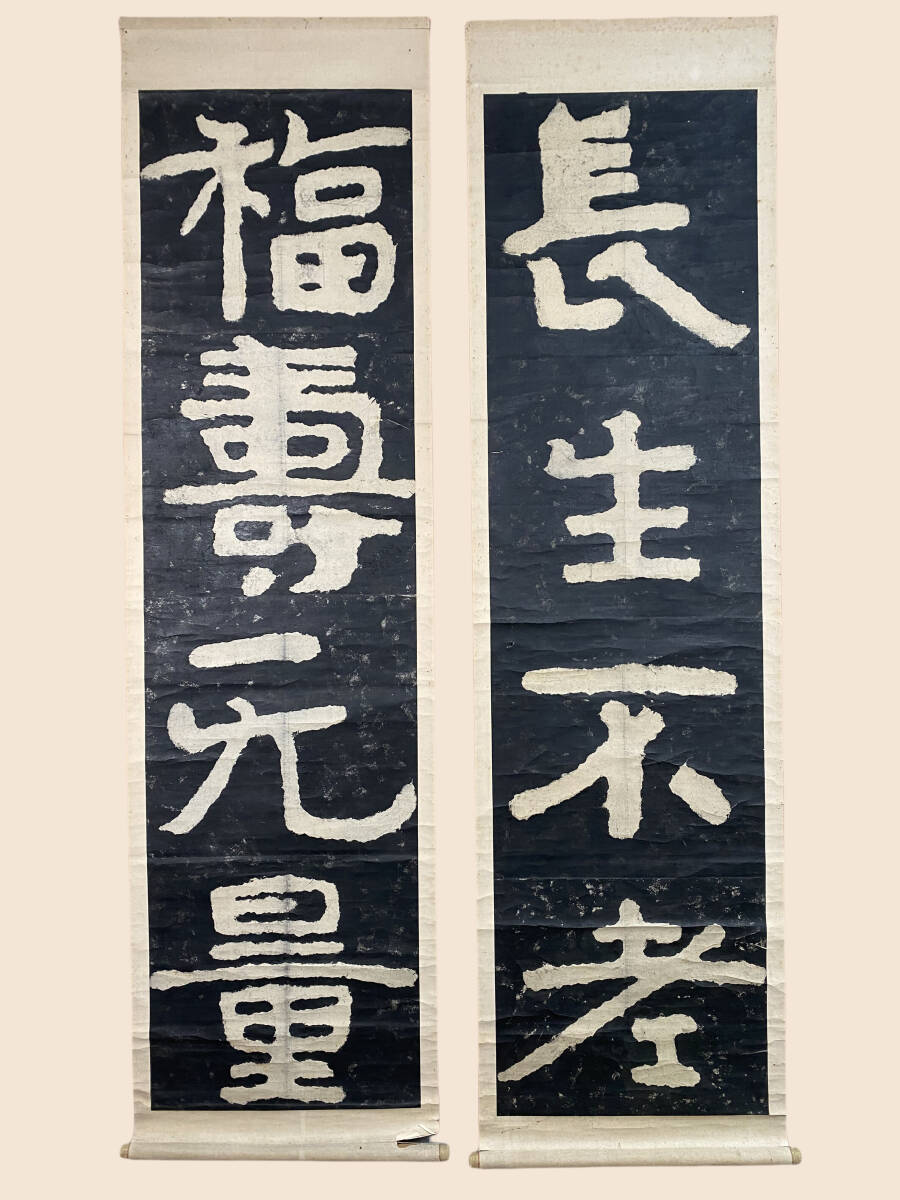 長生不老
福壽无量